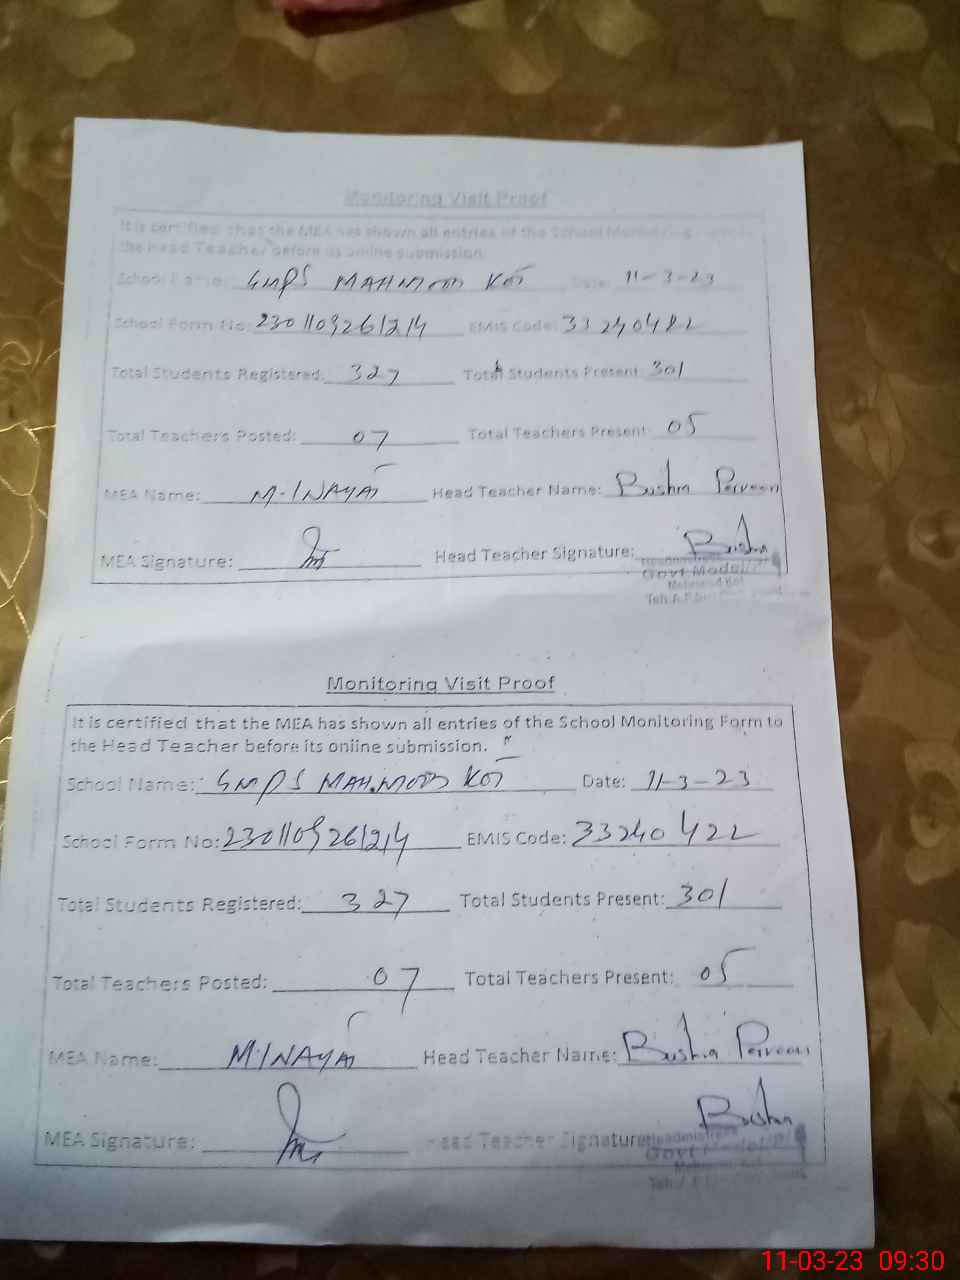 Monitoring Visit Proof
It is certified that the MEA has shown all entries of the School Monitoring
the Head Teacher before its online submission.
School Name: GMPS MAHMOOD KOT Date: 11-3-23
School Form No: 2301109261214 EMIS Code:
Total Students Registered: 327 Total Students Present: 301
Total Teachers Posted: 07 Total Teachers Present: 05
MEA Name: M. INAYAT Head Teacher Name: Bushra Parveen
MEA Signature: Head Teacher Signature: Bushra
Govt Model
Monitoring Visit Proof
It is certified that the MEA has shown all entries of the School Monitoring Form to
the Head Teacher before its online submission.
School Name: GMPS MAHMOOD KOT Date: 11-3-23
School Form No: 2301109261214 EMIS Code: 33240422
Total Students Registered: 327 Total Students Present: 301
Total Teachers Posted: 07 Total Teachers Present: 05
MEA Name: M. INAYAT Head Teacher Name: Bushra Parveen
MEA Signature: Head Teacher Signature: Bushra
11-03-23 09:30